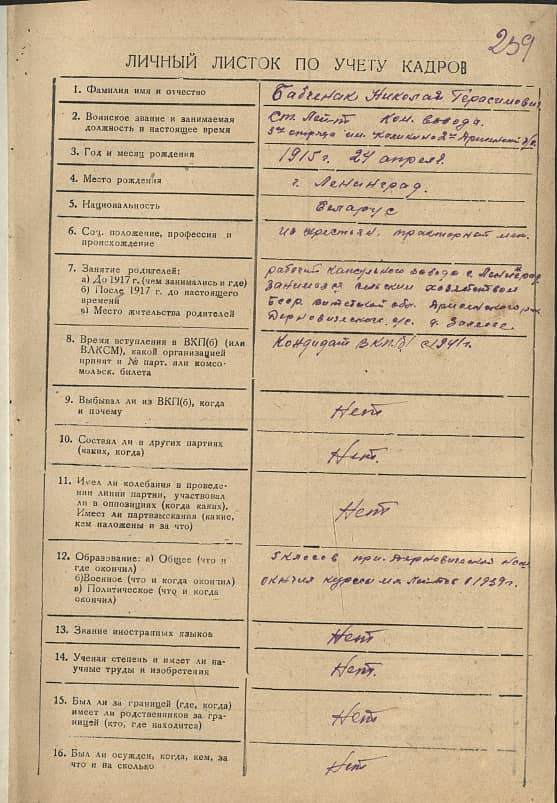 259
ЛИЧНЫЙ ЛИСТОК ПО УЧЕТУ КАДРОВ
1. Фамилия имя и отчество
Бабченак Николай Герасимович
2. Воинское звание и занимаемая
должность в настоящее время
Ст. Лейт. Ком. взвода.
3го отряда им.
3. Год и месяц рождения
1915 г. 24 апреля.
4. Место рождения
г. Ленинград.
5. Национальность
Беларус
6. Соц. положение, профессия и
происхождение
из крестьян. тракторной мех.
7. Занятие родителей:
а) До 1917 г. (чем занимались и где)
б) После 1917 г. до настоящего
времени
в) Место жительства родителей
рабочий завода г. Ленинград
занимался сельским хозяйством
БССР Витебской обл.
с/с. д.
8. Время вступления в ВКП(б) (или
ВЛКСМ), какой организацией
принят и № парт. или комсо-
мольск. билета
Кондидат ВКП/б/ с 1941 г.
9. Выбывал ли из ВКП(б), когда
и почему
Нет
10. Состоял ли в других партиях
(каких, когда)
Нет.
11. Имел ли колебания в проведе-
нии линии партии, участвовал
ли в оппозициях (когда каких).
Имеет ли партвзыскания (какие,
кем наложены и за что)
Нет
12. Образование: а) Общее (что и
где окончил)
б) Военное (что и когда окончил)
в) Политическое (что и когда
окончил)
5 классов при.
окнчил курсы в 1939 г.
13. Знание иностранных языков
Нет
14. Ученая степень и имеет ли на-
учные труды и изобретения
Нет.
15. Был ли за границей (где, когда)
имеет ли родственников за гра-
ницей (кто, где находится)
Нет
16. Был ли осужден, когда, кем, за
что и на сколько
Нет